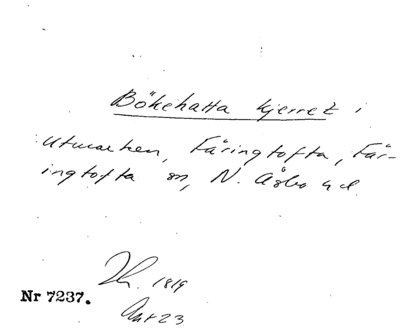 Bökehatta kjerret i
utmarken, Färingtofta, Fär-
ingtofta sn, N. Åsbo hd.
Lh. 1819
Nr 7237.
Akt 23